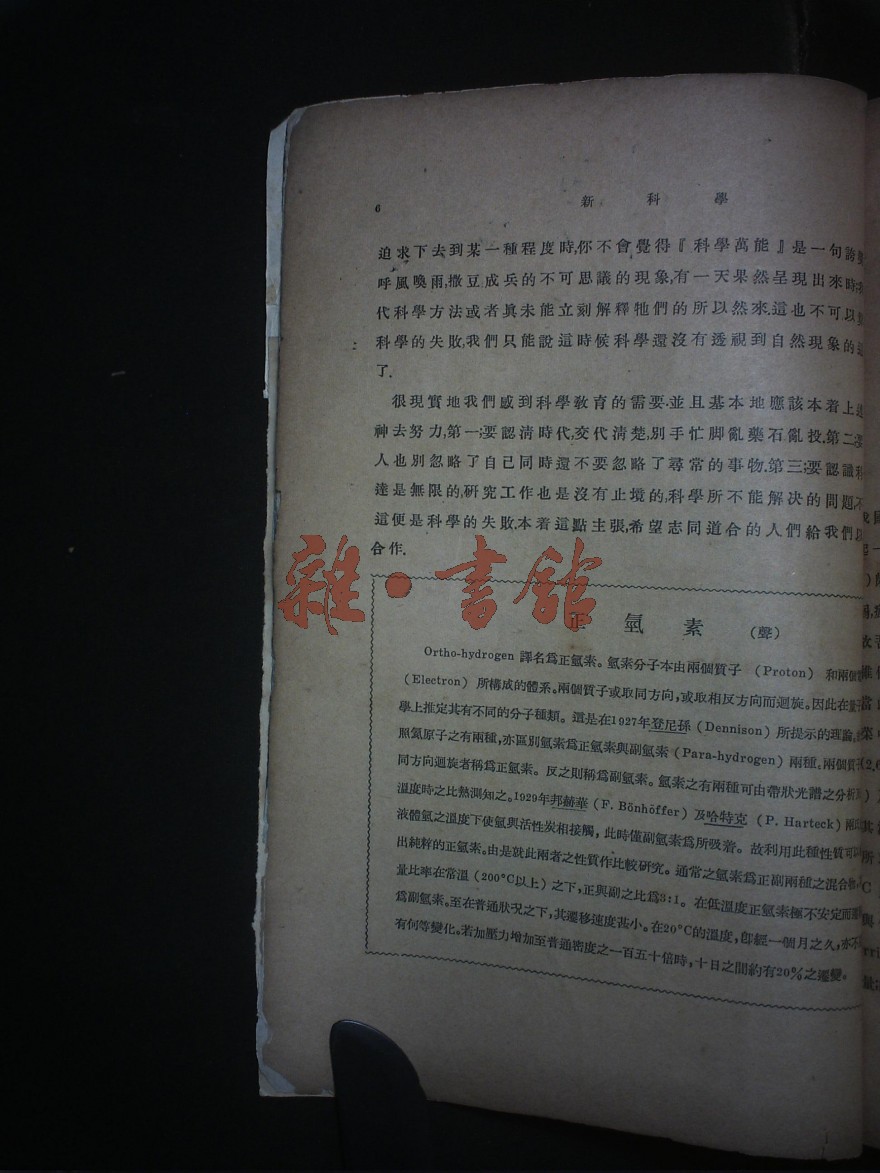 6
新科學
追求下去到某一種程度時,你不會覺得『科學萬能』是一句誇
呼風喚雨,撒豆成兵的不可思議的現象,有一天果然呈現出來時,
代科學方法或者眞未能立刻解釋牠們的所以然來.這也不可以
科學的失敗,我們只能說這時候科學還沒有透視到自然現象的
了.
很現實地我們感到科學敎育的需要.並且基本地應該本着上
神去努力,第一;要認淸時代,交代淸楚,別手忙脚亂藥石亂投.第二;要
人也別忽略了自己同時還不要忽略了尋常的事物.第三;要認識科
達是無限的,硏究工作也是沒有止境的,科學所不能解决的問題,不
這便是科學的失敗.本着這點主張,希望志同道合的人們給我們以
合作.
雜·書館
正氫素 (聲)
Ortho-hydrogen 譯名爲正氫素。氫素分子本由兩個質子 (Proton) 和兩個
(Electron) 所構成的體系。兩個質子或取同方向,或取相反方向而迴旋。因此在量子
學上推定其有不同的分子種類。這是在1927年登尼孫 (Dennison) 所提示的理論。
照氦原子之有兩種,亦區別氫素爲正氫素與副氫素 (Para-hydrogen) 兩種。兩個質子
同方向迴旋者稱爲正氫素。反之則稱爲副氫素。氫素之有兩種可由帶狀光譜之分析
溫度時之比熱測知之。1929年邦赫華 (F. Bönhöffer) 及哈特克 (P. Harteck) 兩
液體氫之溫度下使氫與活性炭相接觸,此時僅副氫素爲所吸着。故利用此種性質可以
出純粹的正氫素。由是就此兩者之性質作比較硏究。通常之氫素爲正副兩種之混合物,
量比率在常溫 (200°C以上) 之下,正與副之比爲3:1。在低溫度正氫素極不安定而
爲副氫素。至在普通狀况之下,其遷移速度甚小。在20°C的溫度,卽經一個月之久,亦不
有何等變化。若加壓力增加至普通密度之一百五十倍時,十日之間約有20%之遷變。